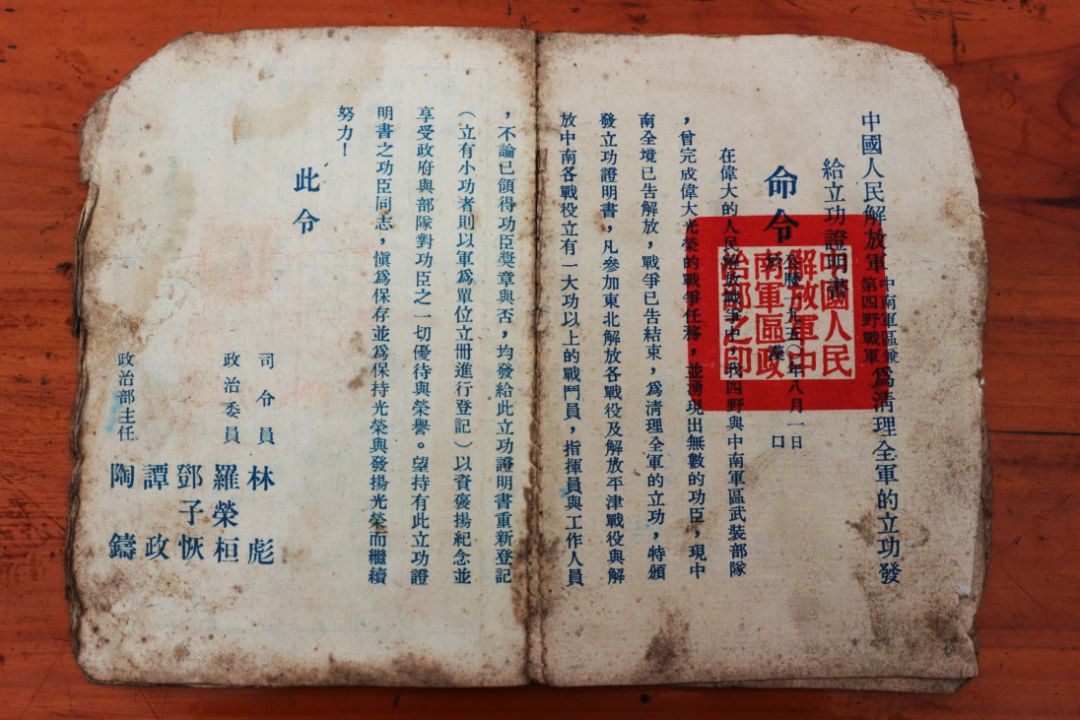 中國人民解放軍中南軍區兼第四野戰軍爲清理全軍的立功發
給立功證明書
命令
公曆一九五〇年八月一日
於漢口
在偉大的人民解放戰爭中，我四野與中南軍區武裝部隊
，曾完成偉大光榮的戰爭任務，並湧現出無數的功臣，現中
南全境已告解放，戰爭已告結束，爲清理全軍的立功，特頒
發立功證明書，凡參加東北解放各戰役及解放平津戰役與解
放中南各戰役立有一大功以上的戰鬥員，指揮員與工作人員
，不論已領得功臣獎章與否，均發給此立功證明書重新登記
（立有小功者則以軍爲單位立冊進行登記）以資褒揚紀念並
享受政府與部隊對功臣之一切優待與榮譽。望持有此立功證
明書之功臣同志，愼爲保存並爲保持光榮與發揚光榮而繼續
努力！
此令
司令員 林彪
政治委員 羅榮桓
鄧子恢
譚政
政治部主任 陶鑄
中國人民
解放軍中
南軍區政
治部之印